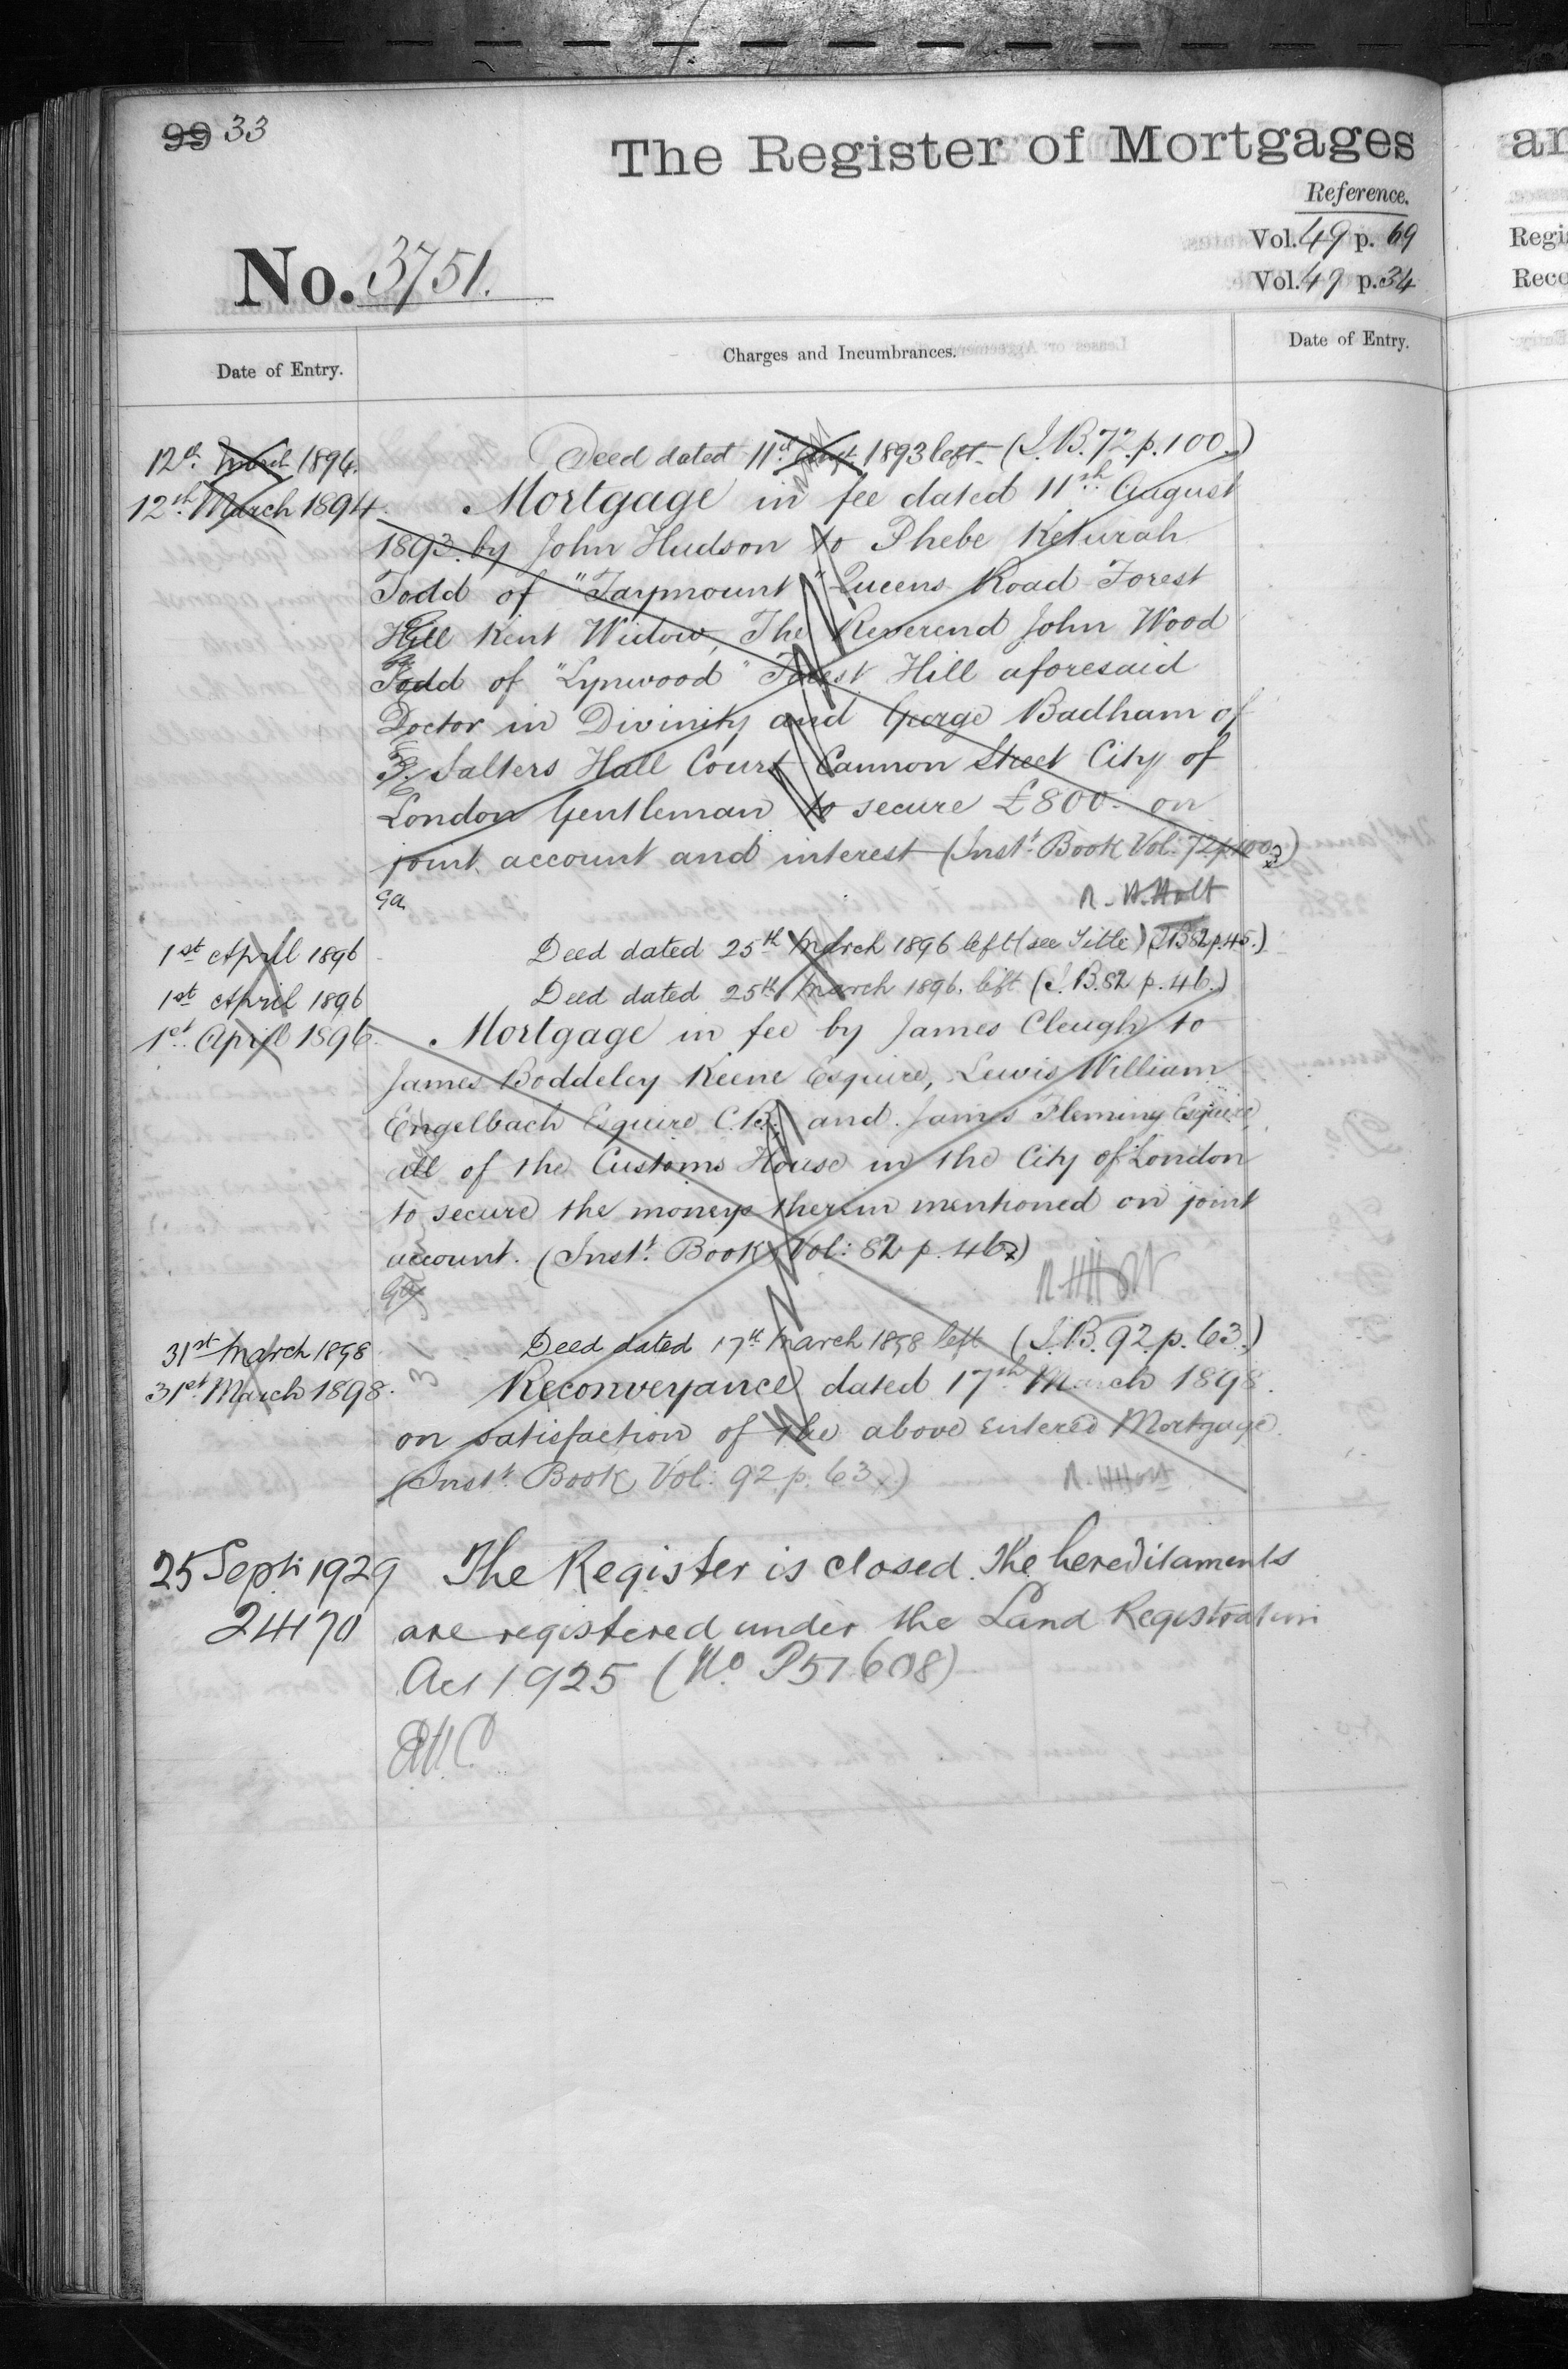 99 33
The Register of Mortgages
Reference.
Vol. 49 p. 69
Vol. 47 p. 34
No. 3751.
Date of Entry.
Charges and Incumbrances.
Date of Entry.
12th March 1894. Deed dated 11th Augt 1893 left (I.B. 72. p. 100.)
12th March 1894. Mortgage in fee dated 11th August
1893. by John Hudson to Phebe Keturah
Todd of "Tarymount" Queens Road Forest
Hill Kent Widow, The Reverend John Wood
Todd of "Lynwood" Forest Hill aforesaid
Doctor in Divinity and George Badham of
3. Salters Hall Court Cannon Street City of
London Gentleman to secure £800. on
joint account and interest (Inst. Book Vol: 72 p. 100)
R. H. Holt
1st April 1896 Deed dated 25th March 1896 left (see Title) (I.B. 82 p. 45.)
1st April 1896 Deed dated 25th March 1896. left (I.B. 82 p. 46.)
1st April 1896. Mortgage in fee by James Cleugh to
James Boddeley Keene Esquire, Lewis William
Engelbach Esquire C.B. and James Fleming Esquire,
all of the Customs House in the City of London
to secure the moneys therein mentioned on joint
account. (Inst. Book Vol: 82 p. 46)
R H Holt
31st March 1898 Deed dated 17th March 1898 left (I.B. 92. p. 63.)
31st March 1898. Reconveyance dated 17th March 1898.
on satisfaction of the above entered Mortgage.
(Inst. Book Vol: 92 p. 63.)
R. H Holt
25 Sept: 1929 The Register is closed. The hereditaments
24470 are registered under the Land Registration
Act 1925 (No P51608)
an
Regi
Rece